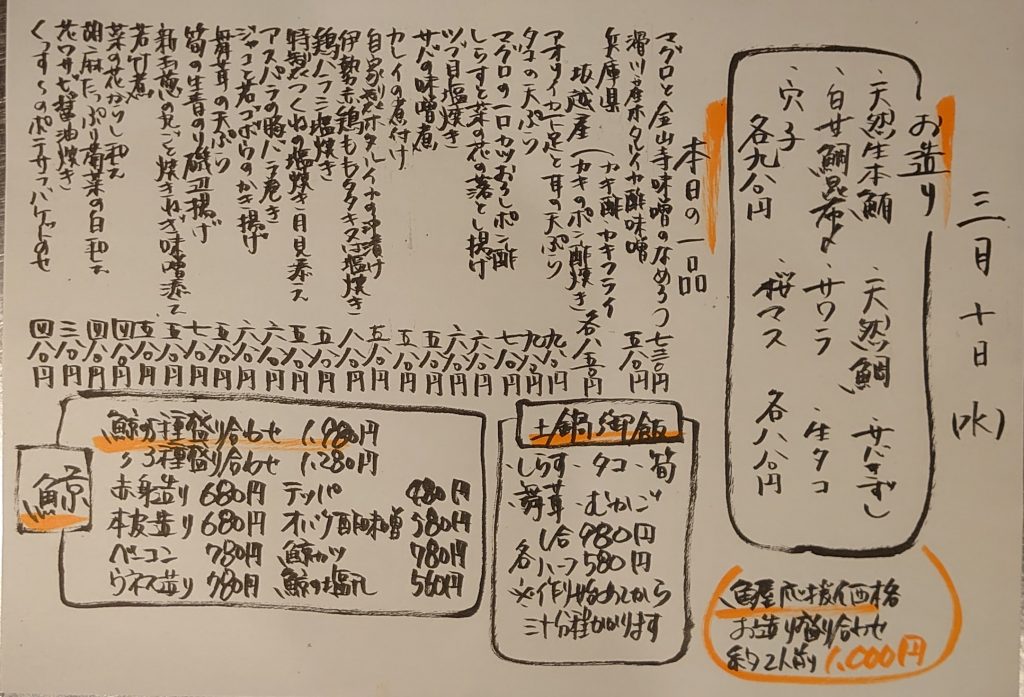 三月十日(水)
お造り
・天然生本鮪
・天然鯛
・サバきずし
・白甘鯛昆布〆
・サワラ
・生タコ
・穴子
・桜マス
各九八〇円
各八八〇円
本日の一品
マグロと金山寺味噌のなめろう 七三〇円
滑川産ホタルイカ酢味噌 五八〇円
兵庫県
坂越産(カキ酢 カキフライ
カキのポン酢焼き 各八五〇円
アオリイカ下足と耳の天ぷら 九八〇円
タコの天ぷら 九八〇円
マグロの一口カツおろしポン酢 七八〇円
しらすと菜の花の落とし揚げ 六八〇円
ツブ貝塩焼き 六八〇円
サバの味噌煮 五八〇円
カレイの煮付け 五八〇円
自家製ホタルイカの沖漬け 五八〇円
伊勢赤鶏もも(タタキ又は塩焼き) 八八〇円
鶏ハラミ塩焼き 五八〇円
特製つくねの塩焼き 月見添え 五八〇円
アスパラの豚バラ巻き 六八〇円
ジャコと若ゴボウのかき揚げ 六八〇円
舞茸の天ぷら 五八〇円
筍の生青のり磯辺揚げ 七八〇円
新玉葱の丸ごと焼き ねぎ味噌添え 五八〇円
若竹煮 五八〇円
菜の花からし和え 四八〇円
胡麻たっぷり菊菜の白和え 四八〇円
花ワサビ醤油漬き 三八〇円
くっすらのポテサラ バゲットのせ 四八〇円
鯨
鯨の5種盛り合わせ 1.980円
〃3種盛り合わせ 1.280円
赤身造り 680円 テッパ 480円
本皮造り 680円 オバケ酢味噌 580円
ベーコン 780円 鯨カツ 780円
ウネス造り 780円 鯨の塩ユッケ 560円
土鍋御飯
・しらす・タコ・筍
・舞茸・むかご
1合980円
各ハーフ580円
※作り始めてから
三十分程かかります
魚屋応援価格
お造り盛り合わせ
約2人前 1.000円